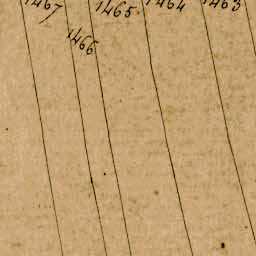 1467 1465 1464 1463
1466